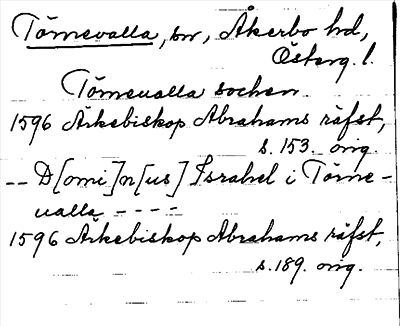 Törnevalla, sn, Åkerbo hd,
Österg. l.
Törneualla sochen
1596 Ärkebiskop Abrahams räfst,
s. 153. orig.
-- D[omi]n[us] Israhel i Törne-
ualla ----
1596 Ärkebiskop Abrahams räfst,
s. 189. orig.